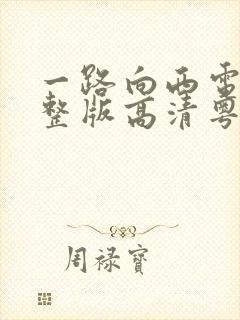 一路向西电
整版高清粤
周禄宝